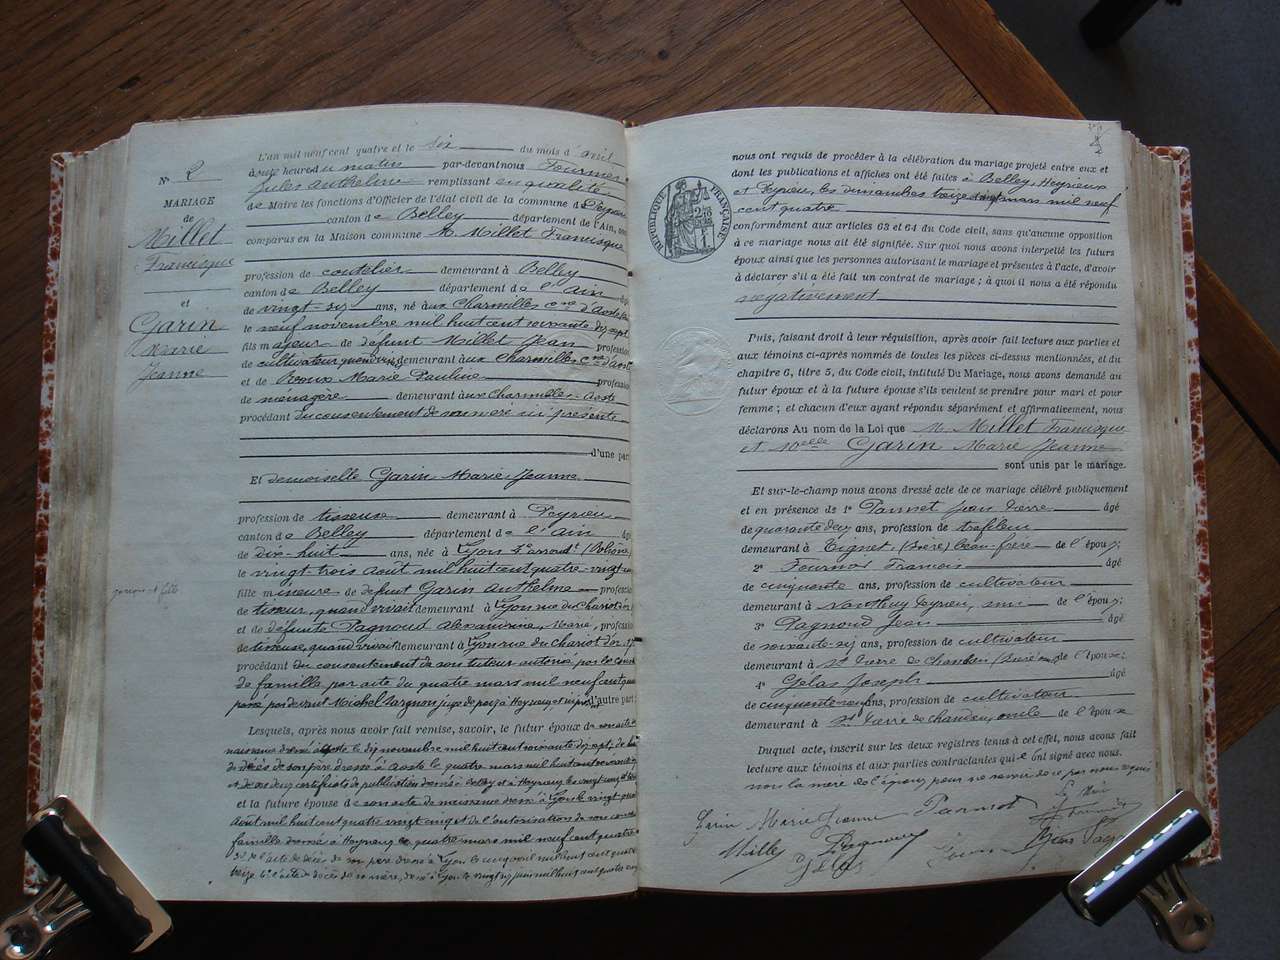 N° 2
MARIAGE
de
Millet
Francisque
et
Garin
Marie
Jeanne
L'an mil neuf cent quatre et le six du mois d'avril
à heures du matin par-devant nous Fournier
Jules Anthelme remplissant en qualité
de Maire les fonctions d'Officier de l'état civil de la commune de Peyrieu
canton de Belley département de l'Ain, sont
comparus en la Maison commune M. Millet Francisque
profession de coutelier demeurant à Belley
canton de Belley département de l'Ain âgé
de vingt-six ans, né aux Charmilles cne d'Aoste
le neuf novembre mil huit cent soixante dix sept
fils majeur de défunt Millet Jean profession
de cultivateur quand vivait demeurant aux Charmilles cne d'Aoste
et de Marie Pauline profession
de ménagère demeurant aux Charmilles Aoste
procédant du consentement de sa mère ici présente
d'une part
Et demoiselle Garin Marie Jeanne
profession de tisseuse demeurant à Peyrieu
canton de Belley département de l'Ain âgée
de dix-huit ans, née à Lyon (Rhône)
le vingt-trois août mil huit cent quatre-vingt
fille mineure de défunt Garin Anthelme profession
de tisseur, quand vivait demeurant à Lyon rue du Chariot d'or
et de défunte Pagnoud Alexandrine, Marie, profession
de tisseuse, quand vivait demeurant à Lyon rue du Chariot d'or
procédant du consentement de son tuteur autorisé par le conseil
de famille par acte du quatre mars mil neuf cent quatre
passé par devant Michel juge de paix à d'autre part;
Lesquels, après nous avoir fait remise, savoir, le futur époux de son acte de
naissance dressé à Aoste le dix novembre mil huit cent soixante dix sept, de
de décès de son père dressé à Aoste le quatre mars mil huit cent
et de deux certificats de publication dressés à Belley et à
et la future épouse de son acte de naissance dressé à Lyon le vingt quatre
août mil huit cent quatre vingt cinq et de l'autorisation de son conseil de
famille dressé à le quatre mars mil neuf cent quatre
de l'acte de décès de son père dressé à Lyon le mil huit cent quatre
treize et l'acte de décès de sa mère, dressé à Lyon le vingt juin mil huit cent quatre
nous ont requis de procéder à la célébration du mariage projeté entre eux et
dont les publications et affiches ont été faites à Belley,
et Peyrieu, les dimanches treize vingt mars mil neuf
cent quatre
conformément aux articles 63 et 64 du Code civil, sans qu'aucune opposition
à ce mariage nous ait été signifiée. Sur quoi nous avons interpellé les futurs
époux ainsi que les personnes autorisant le mariage et présentes à l'acte, d'avoir
à déclarer s'il a été fait un contrat de mariage; à quoi il nous a été répondu
négativement
Puis, faisant droit à leur réquisition, après avoir fait lecture aux parties et
aux témoins ci-après nommés de toutes les pièces ci-dessus mentionnées, et du
chapitre 6, titre 5, du Code civil, intitulé Du Mariage, nous avons demandé au
futur époux et à la future épouse s'ils veulent se prendre pour mari et pour
femme; et chacun d'eux ayant répondu séparément et affirmativement, nous
déclarons Au nom de la Loi que M. Millet Francisque
et Melle Garin Marie Jeanne
sont unis par le mariage.
Et sur-le-champ nous avons dressé acte de ce mariage célébré publiquement
et en présence de 1° Jean Pierre âgé
de quarante deux ans, profession de tréfileur
demeurant à Tignet, (Isère) beau-frère de l'époux;
2° Fournier Francis âgé
de cinquante ans, profession de cultivateur
demeurant à Peyrieu, ami de l'époux;
3° Pagnoud Jean âgé
de soixante-six ans, profession de cultivateur
demeurant à St Pierre de Chandieu (Isère) de l'épouse;
4° Gelas Joseph âgé
de cinquante ans, profession de cultivateur
demeurant à St Pierre de Chandieu, oncle de l'épouse
Duquel acte, inscrit sur les deux registres tenus à cet effet, nous avons fait
lecture aux témoins et aux parties contractantes qui ont signé avec nous.
non la mère de l'époux pour ne savoir de ce par nous requis
Le Maire
Garin Marie Jeanne
Millet Pagnoud
Gelas
RÉPUBLIQUE FRANÇAISE